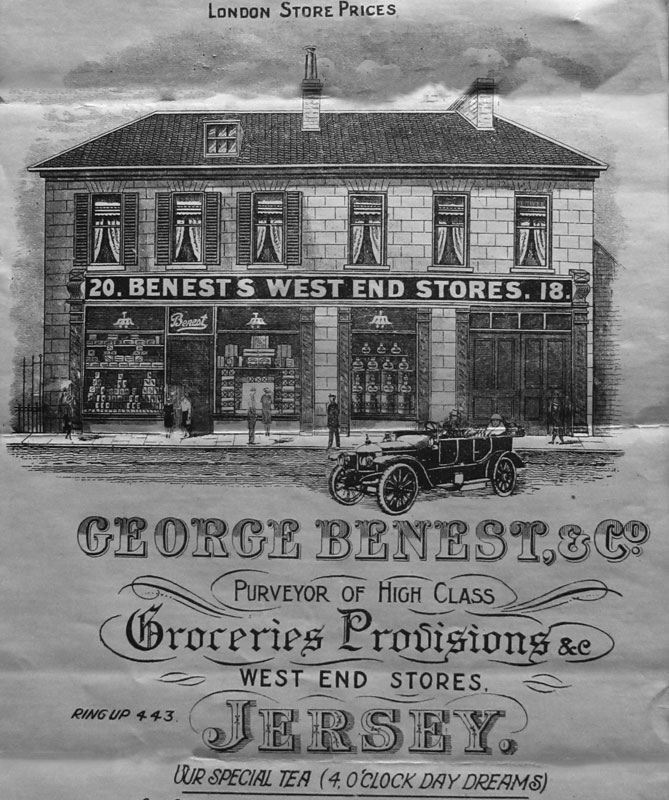 LONDON STORE PRICES
20. BENEST'S WEST END STORES. 18.
Benest
GEORGE BENEST, & Co
PURVEYOR OF HIGH CLASS
Groceries Provisions &c
WEST END STORES,
RING UP 443.
JERSEY.
OUR SPECIAL TEA (4, O'CLOCK DAY DREAMS)